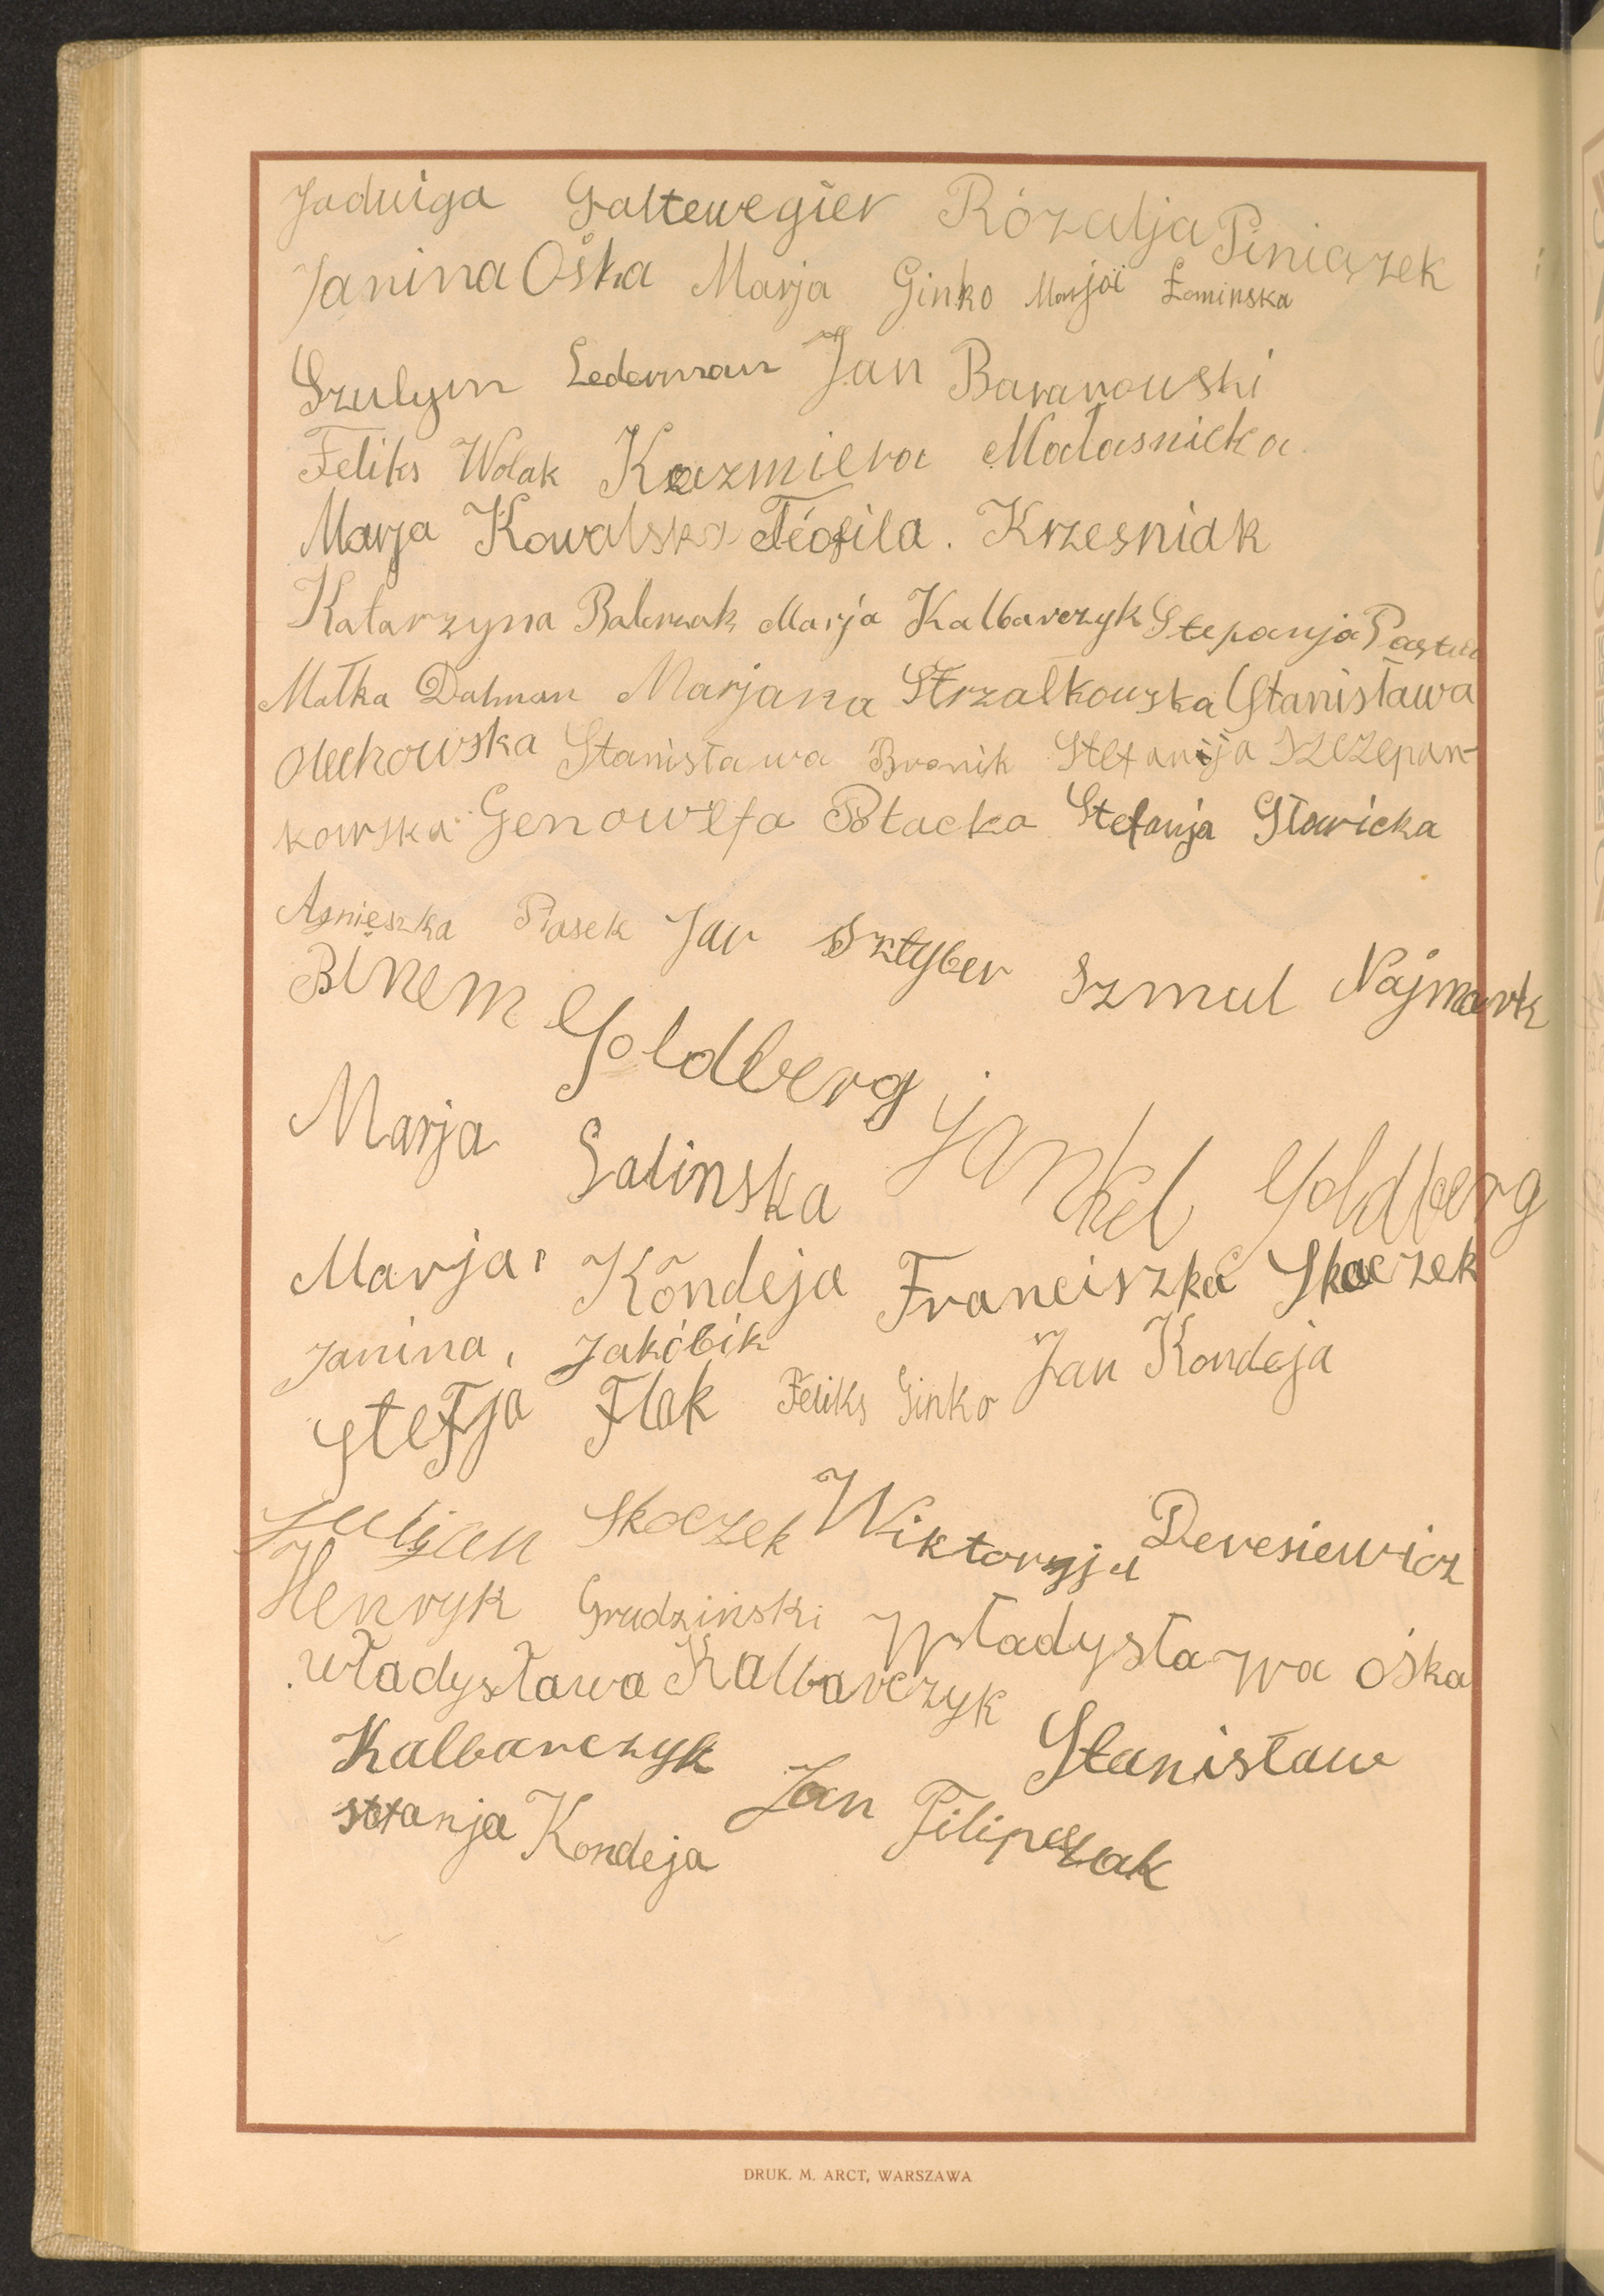 Jadwiga Galtewegier Rózalja Piniązek
Janina Ośka Marja Ginko Marja Łaminska
Szulym Lederman Jan Baranowski
Feliks Wolak Kazmiera Małasnicka
Marja Kowalska Teofila. Krzesniak
Katarzyna Marja Kalbarczyk Stepanja
Małka Dalman Marjana Strzalkowska Stanisława
Olechowska Stanisława Bronik Stefanija Szczepan-
kowska Genowefa Płacka Stefanja Sławicka
Agnieszka Piasek Jan Sztyber Szmul Najmark
Binem Goldberg
Marja Galinska Jankel Goldberg
Marja Kondeja Franciszka Skoczek
Janina, Jakóbik Jan Kondeja
Stefja Flak Feliks Ginko
Juljan Skoczek Wiktoryja Deresiewicz
Henryk Grudzinski Władysława Ośka
Władysława Kalbarczyk
Kalbarczyk Stanisław
Stefanja Kondeja Jan Filipczak
DRUK. M. ARCT, WARSZAWA